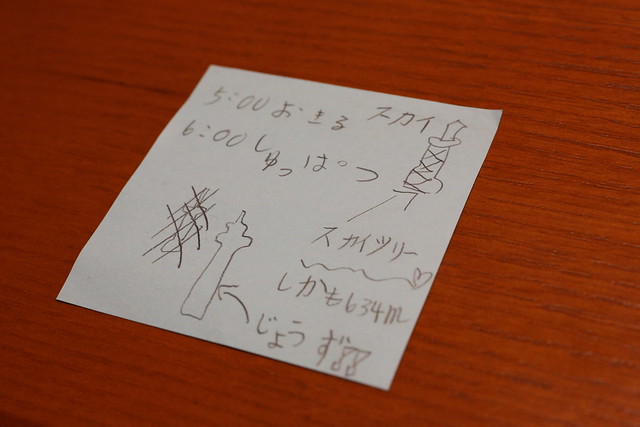 5:00 おきる
スカイ
6:00 しゅっぱつ
スカイツリー
しかも634m
じょうず!!